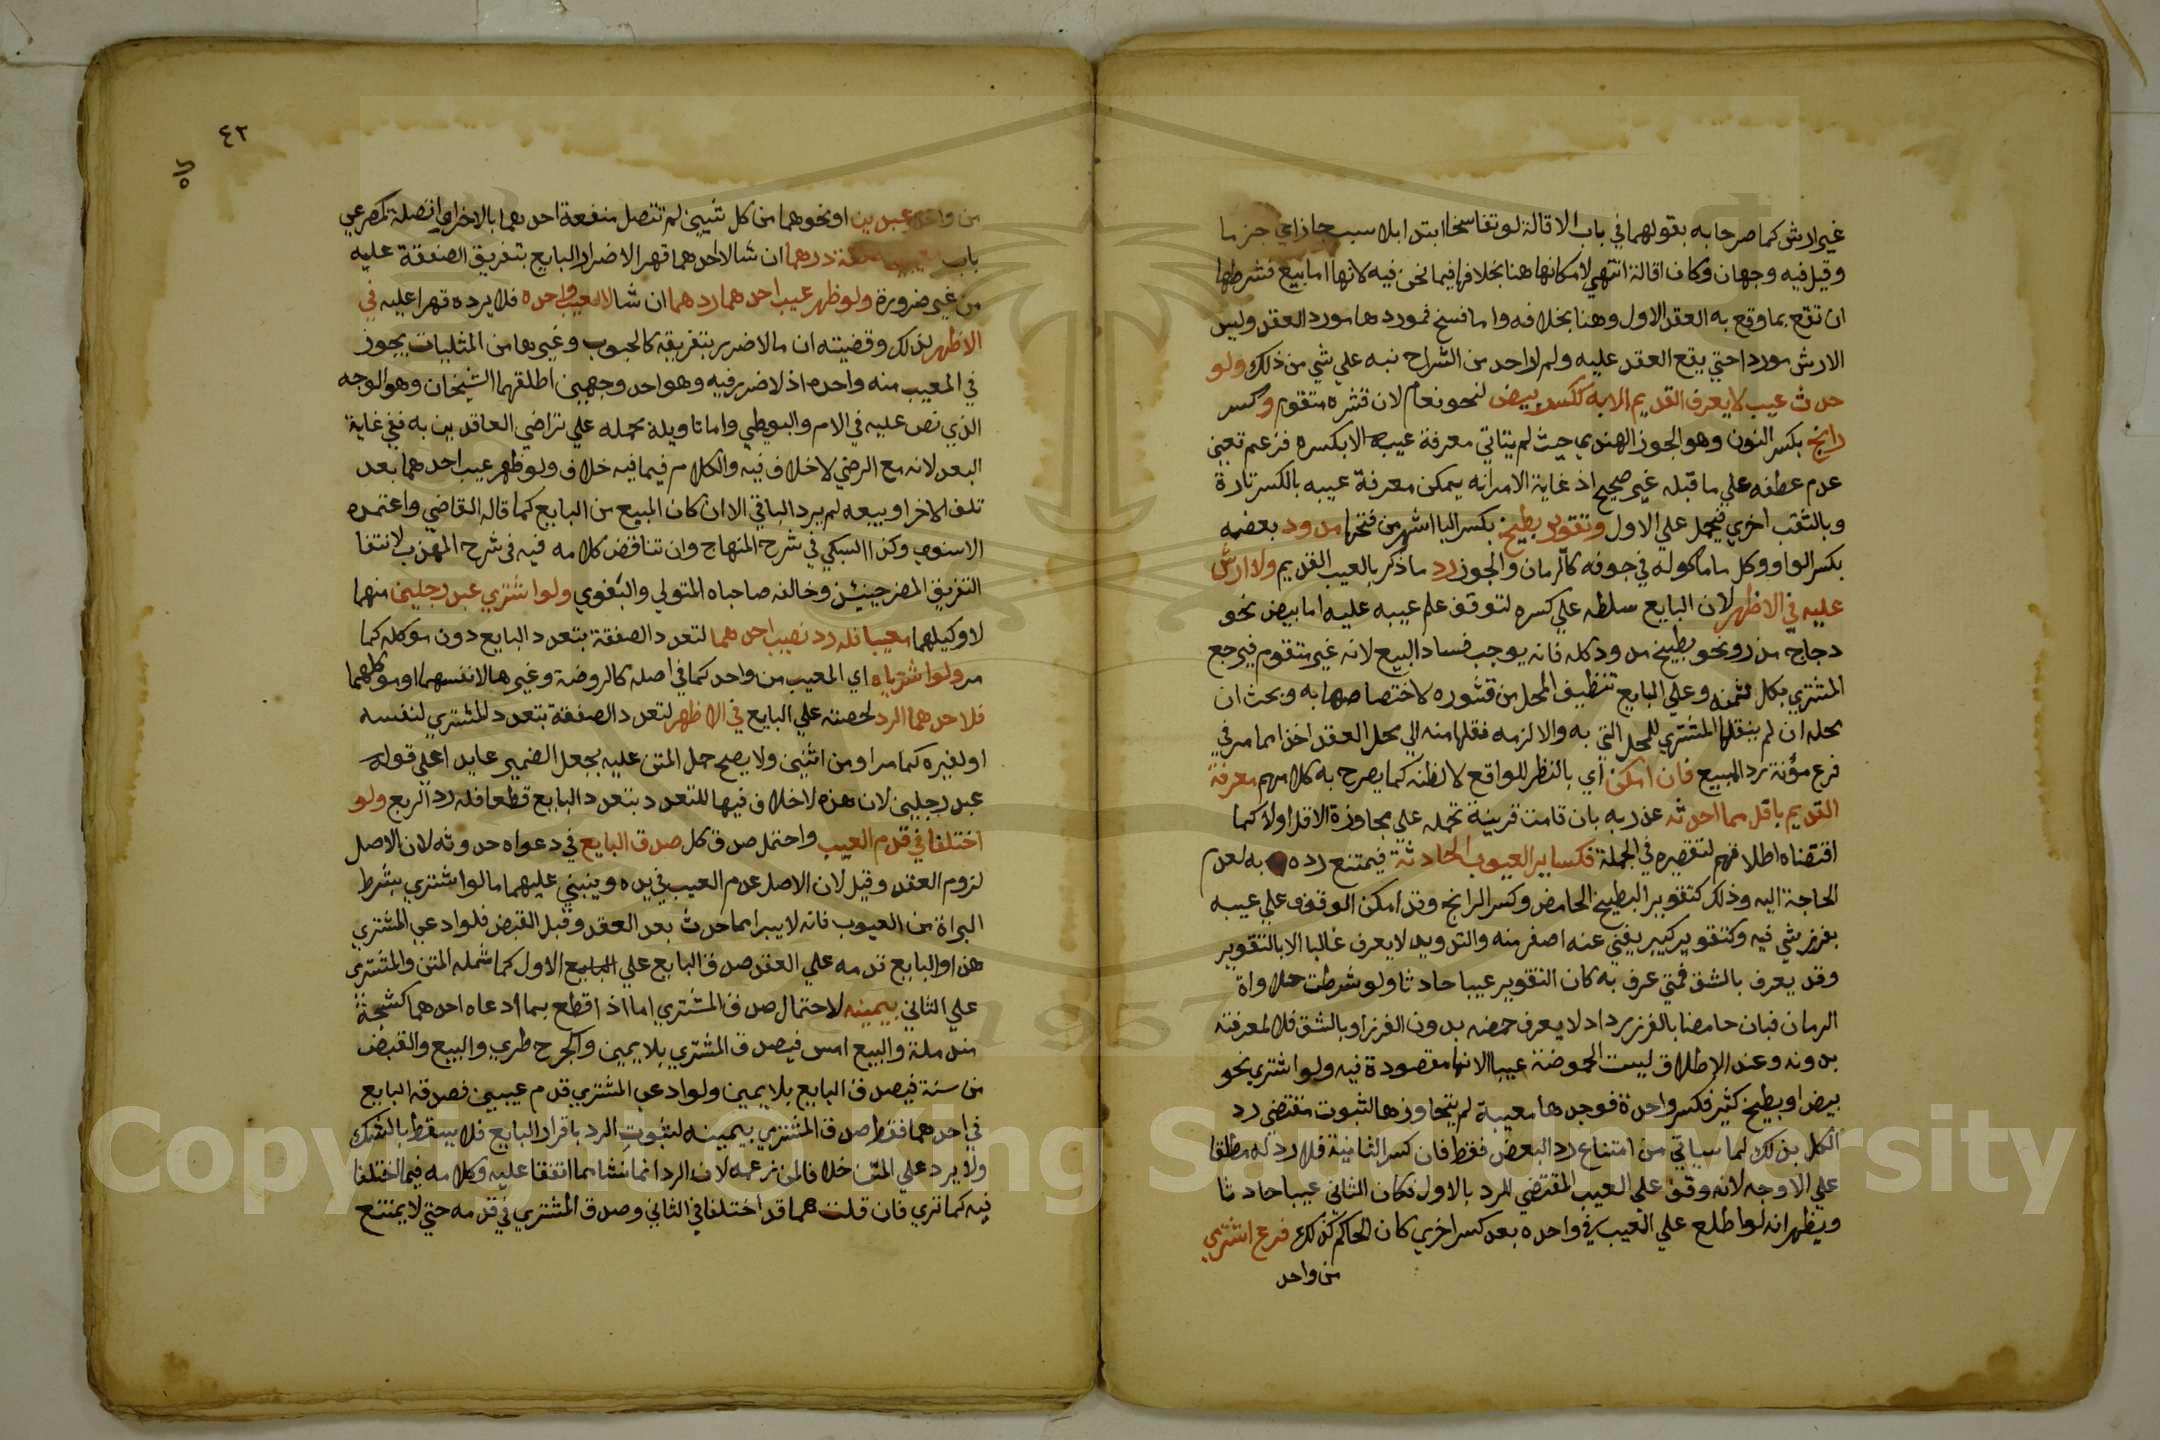 غير ارش كما صرحا به بقولهما في باب الاقالة لو تفاسخا ابتدا بلا سبب جاز اي جزما
وقيل فيه وجهان وكان اقالة انتهي لامكانها هنا بخلافها فيما نحن فيه لانها اما بيع فشرطها
ان تقع بما وقع به العقد الاول وهنا بخلافه واما فسخ فموردها مورد العقد وليس
الارش مورداحتي يقع العقد عليه ولم ار احد من الشراح نبه علي شي من ذلك ولو
حدث عيب لا يعرف القديم الا به ككسر بيض لنحو نعام لان قشره متقوم وكسر
رانج بكسر النون وهو الجوز الهندي حيث لم يتاتي معرفة عيبه الا بكسره فزعم تعين
عدم عطفه علي ما قبله غير صحيح اذ غاية الامر انه يمكن معرفة عيبه بالكسر تارة
وبالثقب اخري فيحمل علي الاول وتقوير بطيخ بكسر البا اشهر من فتحها مدود بعضه
بكسر الواو وكل ما ماكوله في جوفه كالرمان والجوز رد ما ذكر بالعيب القديم ولا ارش
عليه في الاظهر لان البايع سلطه علي كسره لتوقف علم عيبه عليه اما بيض نحو
دجاج مذر ونحو بطيخ مدود كله فانه يوجب فساد البيع لانه غير متقوم فيرجع
المشتري بكل ثمنه وعلي البايع تنظيف المحل من قشوره لاختصاصها به وبحث ان
محله ان لم ينقلها المشتري للمحل التي به والا لزمه نقلها منه الي محل العقد اخذا مما مر في
فرع مؤنة رد المبيع فان امكن اي بالنظر للواقع لا لظنه كما يصرح به كلامهم معرفة
القديم باقل مما احدثه عذر به بان قامت قرينة تحمله علي مجاوزة الاقل اولا كما
اقتضاه اطلاقهم لتقصيره في الجملة فكساير العيوب الحادثة فيمتنع رده به لعدم
الحاجة اليه وذلك كتقوير البطيخ الحامض وكسر الرانج وقد امكن الوقوف علي عيبه
بغرز شي فيه وكتقوير كبير يغني عنه اصغر منه والتدويد لا يعرف غالبا الا بالتقوير
وقد يعرف بالشق فمتي عرف به كان التقوير عيبا حادثا ولو شرطت حلاواة
الرمان فبان حامضا بالغرز رد اذ لا يعرف حمضه بدون الغرز او بالشق فلا لمعرفته
بدونه وعند الاطلاق ليست الحموضة عيبا لانها مقصودة فيه ولو اشتري نحو
بيض او بطيخ كثير فكسر واحدة فوجدها معيبة لم يتجاوزها لثبوت مقتضي رد
الكل بذلك لما سياتي من امتناع رد البعض فقط فان كسر الثانية فلا رد له مطلقا
علي الاوجه لانه وقف علي العيب المقتضي للرد بالاول فكان الثاني عيبا حادثا
ويظهر انه لو اطلع علي العيب في واحده بعد كسر اخري كان الحاكم كذلك فرع اشتري
من واحد
٤٢
من واحد عبدين او نحوهما من كل شيين لم تتصل منفعة احدهما بالاخر اي اتصلة كمصرعي
باب صفقة ردهما ان شا لا احدهما قهرا لاضرار البايع بتفريق الصفقة عليه
من غير ضرورة ولو ظهر عيب احدهما ردهما ان شا لا المعيب واحده فلا يرده قهرا عليه في
الاظهر لذلك وقضيته ان ما لا ضرر بتفريقه كالحبوب وغيرها من المثليات يجوز
في المعيب منه واحده اذ لا ضرر فيه وهو احد وجهين اطلقهما الشيخان وهو الوجه
الذي نص عليه في الام والبويطي واما تاويله بحمله علي تراضي العاقدين به ففي غاية
البعد لانه مع الرضي لا خلاف فيه والكلام فيما فيه خلاف ولو ظهر عيب احدهما بعد
تلف الاخر او بيعه لم يرد الباقي الا ان كان المبيع من البايع كما قاله القاضي واعتمده
الاسنوي وكذا السبكي في شرح المنهاج وان تناقض كلامه فيه في شرح المهذب لانتفا
التفريق المضر حينئذ وخالفه صاحباه المتولي والبغوي ولو اشتري عبد رجلين منهما
لا وكيلهما معيبا فله رد نصيب احدهما لتعدد الصفقة بتعدد البايع دون موكله كما
مر ولو اشترياه اي المعيب من واحد كما في اصله كالروضة وغيرها لانفسهما او موكلهما
فلاحدهما الرد لحصته علي البايع في الاظهر لتعدد الصفقة بتعدد المشتري لنفسه
او لغيره كما مر او من اثنين ولا يصح حمل المتن عليه بجعل الضمير عايدا علي قوله
عبد رجلين لان هذه لا خلاف فيها للتعدد بتعدد البايع قطعا فله رد الربع ولو
اختلفا في قدم العيب واحتمل صدق كل صدق البايع في دعواه حدوثه لان الاصل
لزوم العقد وقيل لان الاصل عدم العيب في يده وينبني عليهما ما لو اشتري بشرط
البراة من العيوب فانه لا يبرا مما حدث بعد العقد وقبل القبض فلو ادعي المشتري
هذا والبايع قدمه علي العقد صدق البايع علي الاول كما شمله المتن والمشتري
علي الثاني بيمينه لاحتمال صدق المشتري اما اذا قطع بما ادعاه احدهما كشجة
مندملة والبيع امس فيصدق المشتري بلا يمين وكجرح طري والبيع والقبض
من سنة فيصدق البايع بلا يمين ولو ادعي المشتري قدم عيبين فصدقه البايع
في احدهما فقط صدق المشتري بيمينه لثبوت الرد باقرار البايع فلا يسقط بالشك
ولا يرد علي المتن خلافا لمن زعمه لان الرد انما نشا مما اتفقا عليه وكلامه فيما اختلفا
فيه كما تري فان قلت هما قد اختلفا في الثاني وصدق المشتري في قدمه حتي لا يمتنع
Copyright © King Saud University
1957